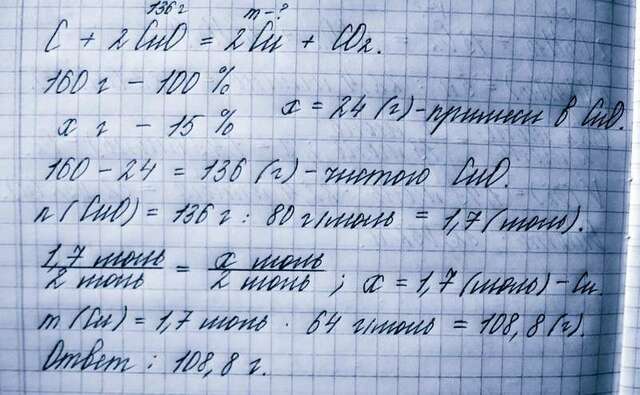 136 г m - ?
C + 2CuO = 2Cu + CO₂.
160 г - 100 %
x г - 15 % x = 24 (г) - примеси в CuO.
160 - 24 = 136 (г) - чистого CuO.
n(CuO) = 136 г : 80 г/моль = 1,7 (моль).
1,7 моль / 2 моль = x моль / 2 моль ; x = 1,7 (моль) - Cu.
m(Cu) = 1,7 моль · 64 г/моль = 108,8 (г).
Ответ : 108,8 г.